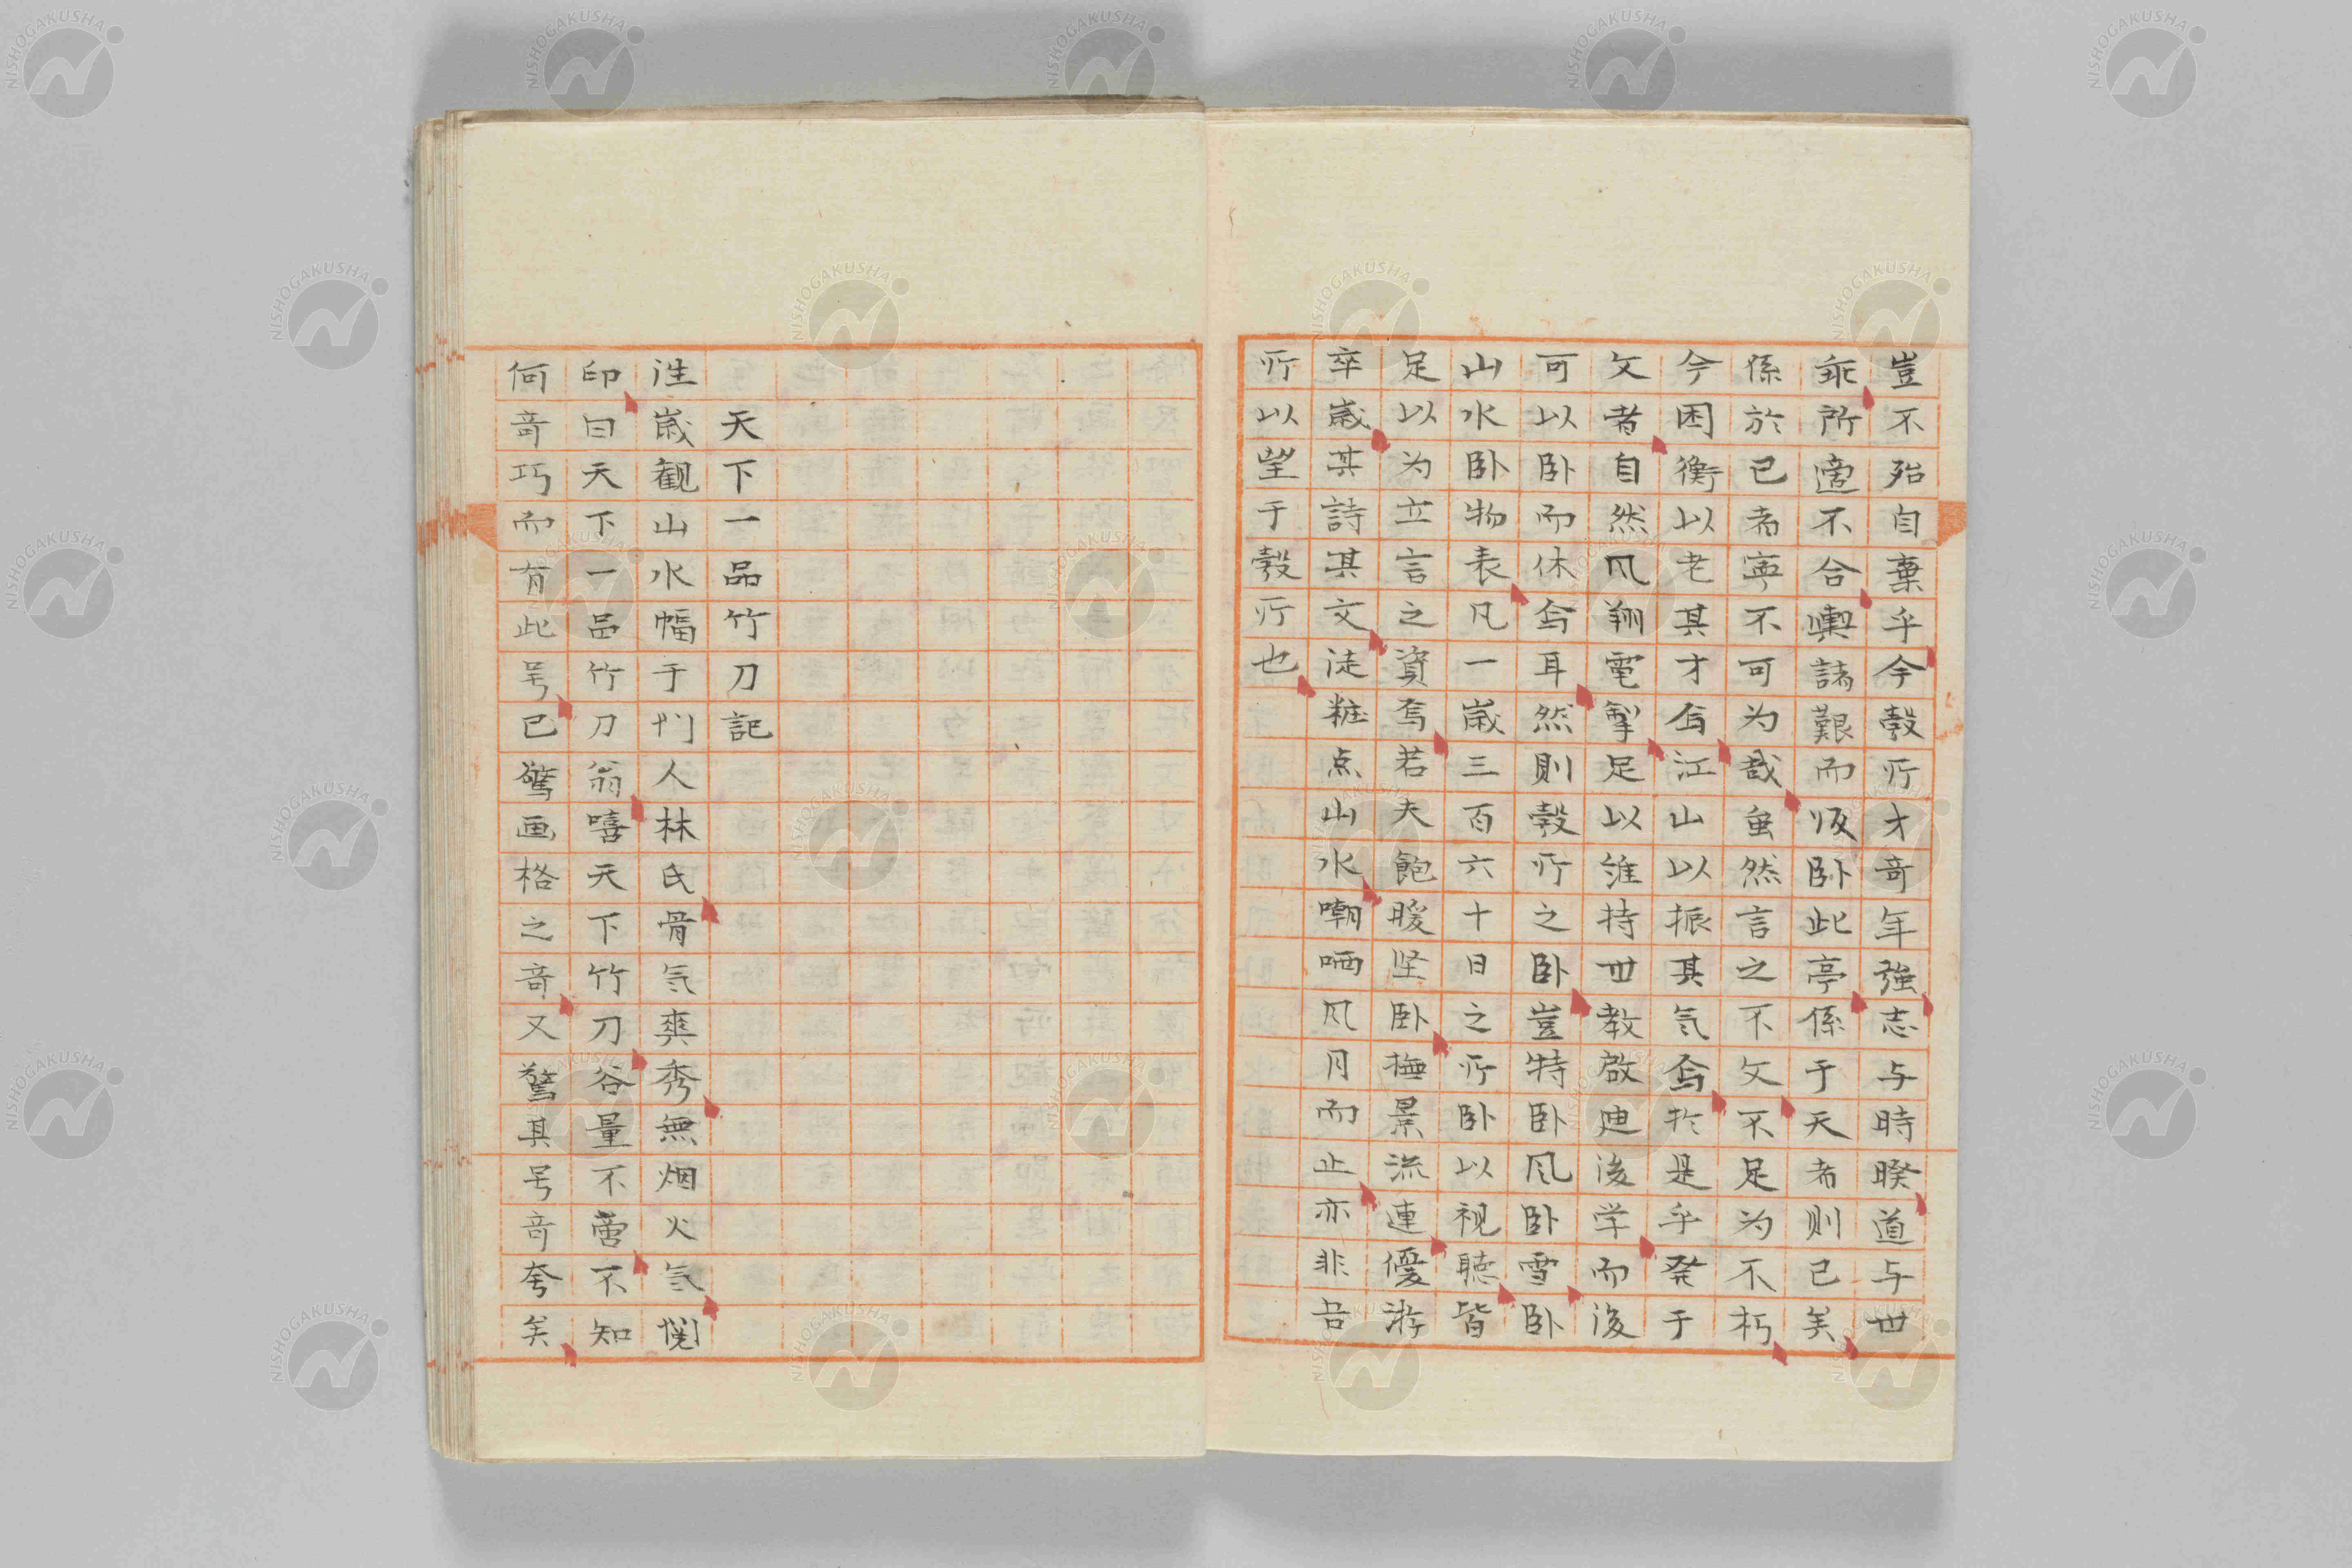 豈不殆自棄乎今穀所才奇年強志与時睽道与世
乖所適不合輿諸艱而皈臥此亭係于天者則已矣
係於已者寧不可为哉虽然言之不文不足为不朽
今困衡以老其才斉江山以振其気斉於是乎発于
文者自然风翔電掣足以維持世教啟迪後学而後
可以臥而休斉耳然則穀所之臥豈特臥风臥雪臥
山水臥物表凡一歲三百六十日之所臥以视聴皆
足以为立言之資焉若夫飽暖坚臥撫景流連優游
卒歲其詩其文徒粧点山水嘲哂风月而止亦非吾
所以望于穀所也
天下一品竹刀記
往歲観山水幅于門人林氏骨気爽秀無烟火気閲
印曰天下一品竹刀翁嘻天下竹刀谷量不啻不知
何奇巧而有此号已驚画格之奇又驚其号奇夸矣
NISHOGAKUSHA